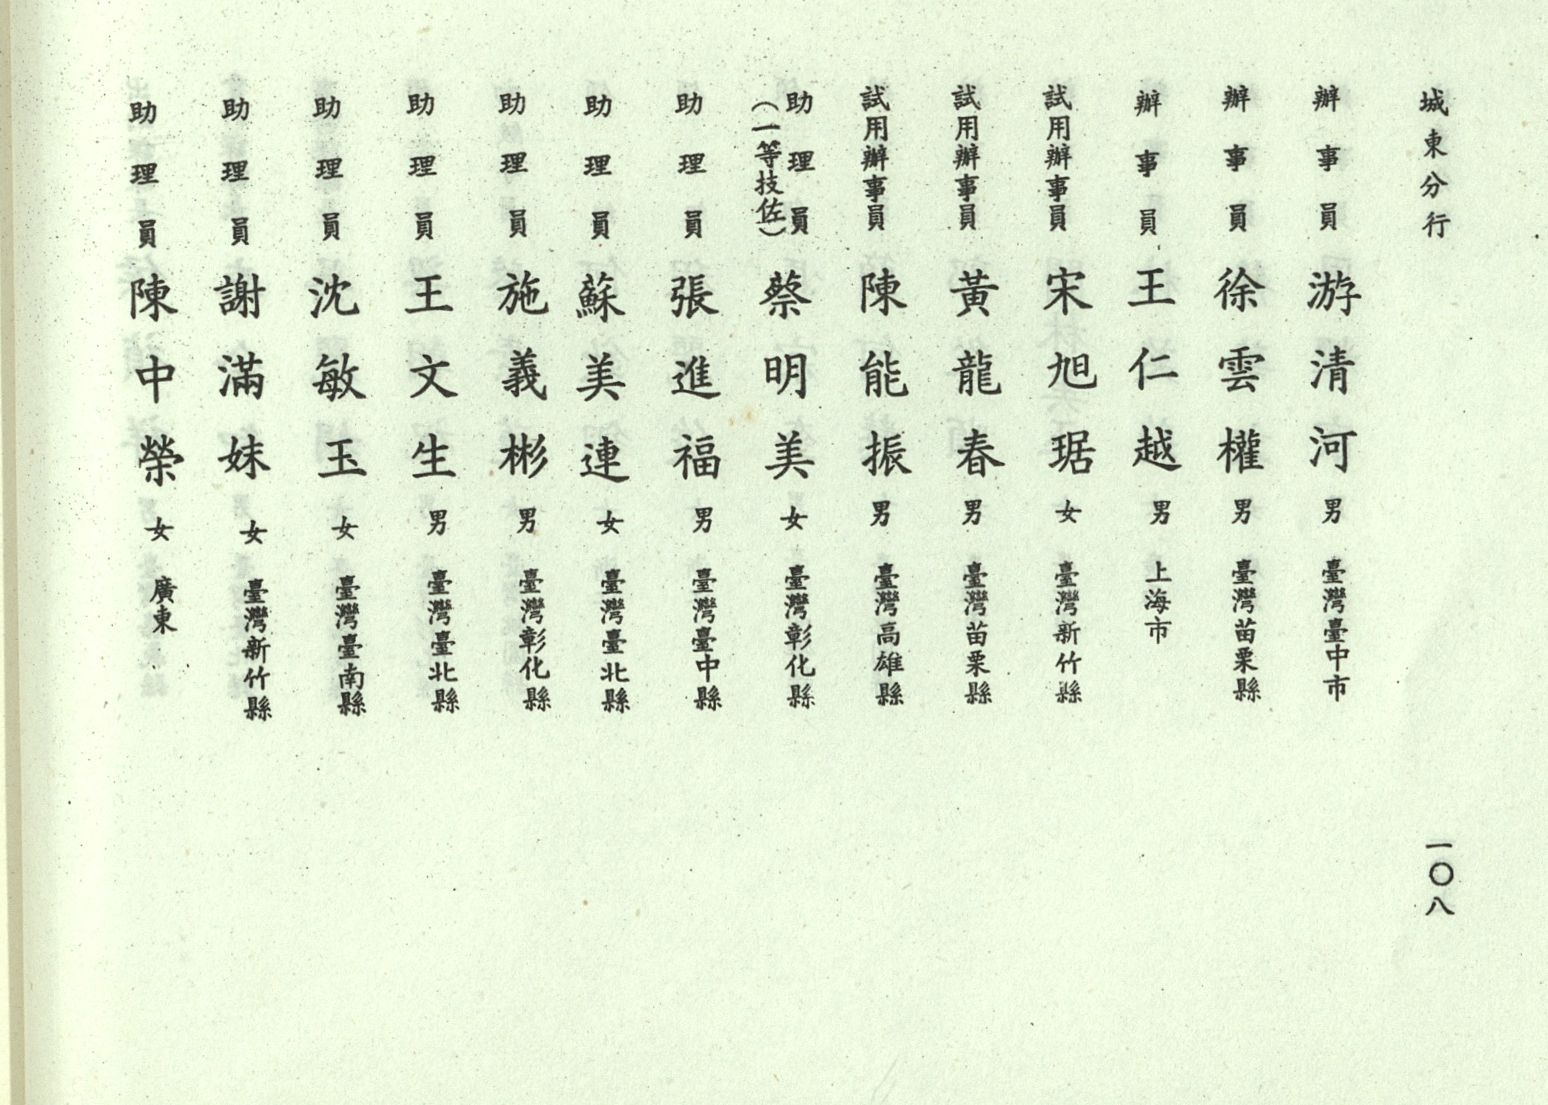 城東分行
一〇八
辦事員 游清河 男 臺灣臺中市
辦事員 徐雲權 男 臺灣苗栗縣
辦事員 王仁越 男 上海市
試用辦事員 宋旭琚 女 臺灣新竹縣
試用辦事員 黃龍春 男 臺灣苗栗縣
試用辦事員 陳能振 男 臺灣高雄縣
助理員（一等技佐） 蔡明美 女 臺灣彰化縣
助理員 張進福 男 臺灣臺中縣
助理員 蘇美連 女 臺灣臺北縣
助理員 施義彬 男 臺灣彰化縣
助理員 王文生 男 臺灣臺北縣
助理員 沈敏玉 女 臺灣臺南縣
助理員 謝滿妹 女 臺灣新竹縣
助理員 陳中榮 女 廣東